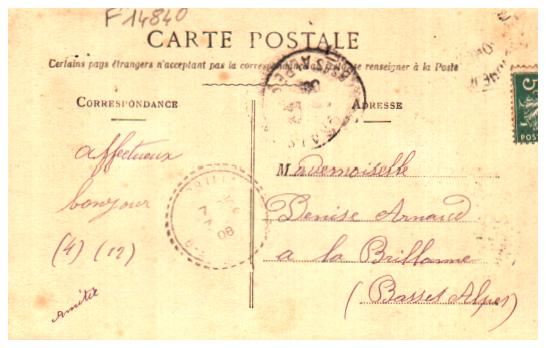 F 14840
CARTE POSTALE
Certains pays étrangers n'acceptant pas la correspondance au recto se renseigner à la Poste
CORRESPONDANCE
ADRESSE
affectueux
bonjour
(4) (12)
Amitié
Mademoiselle
Denise Arnaud
a la Brillanne
(Basses Alpes)
BASSES ALPES
08
5
POST